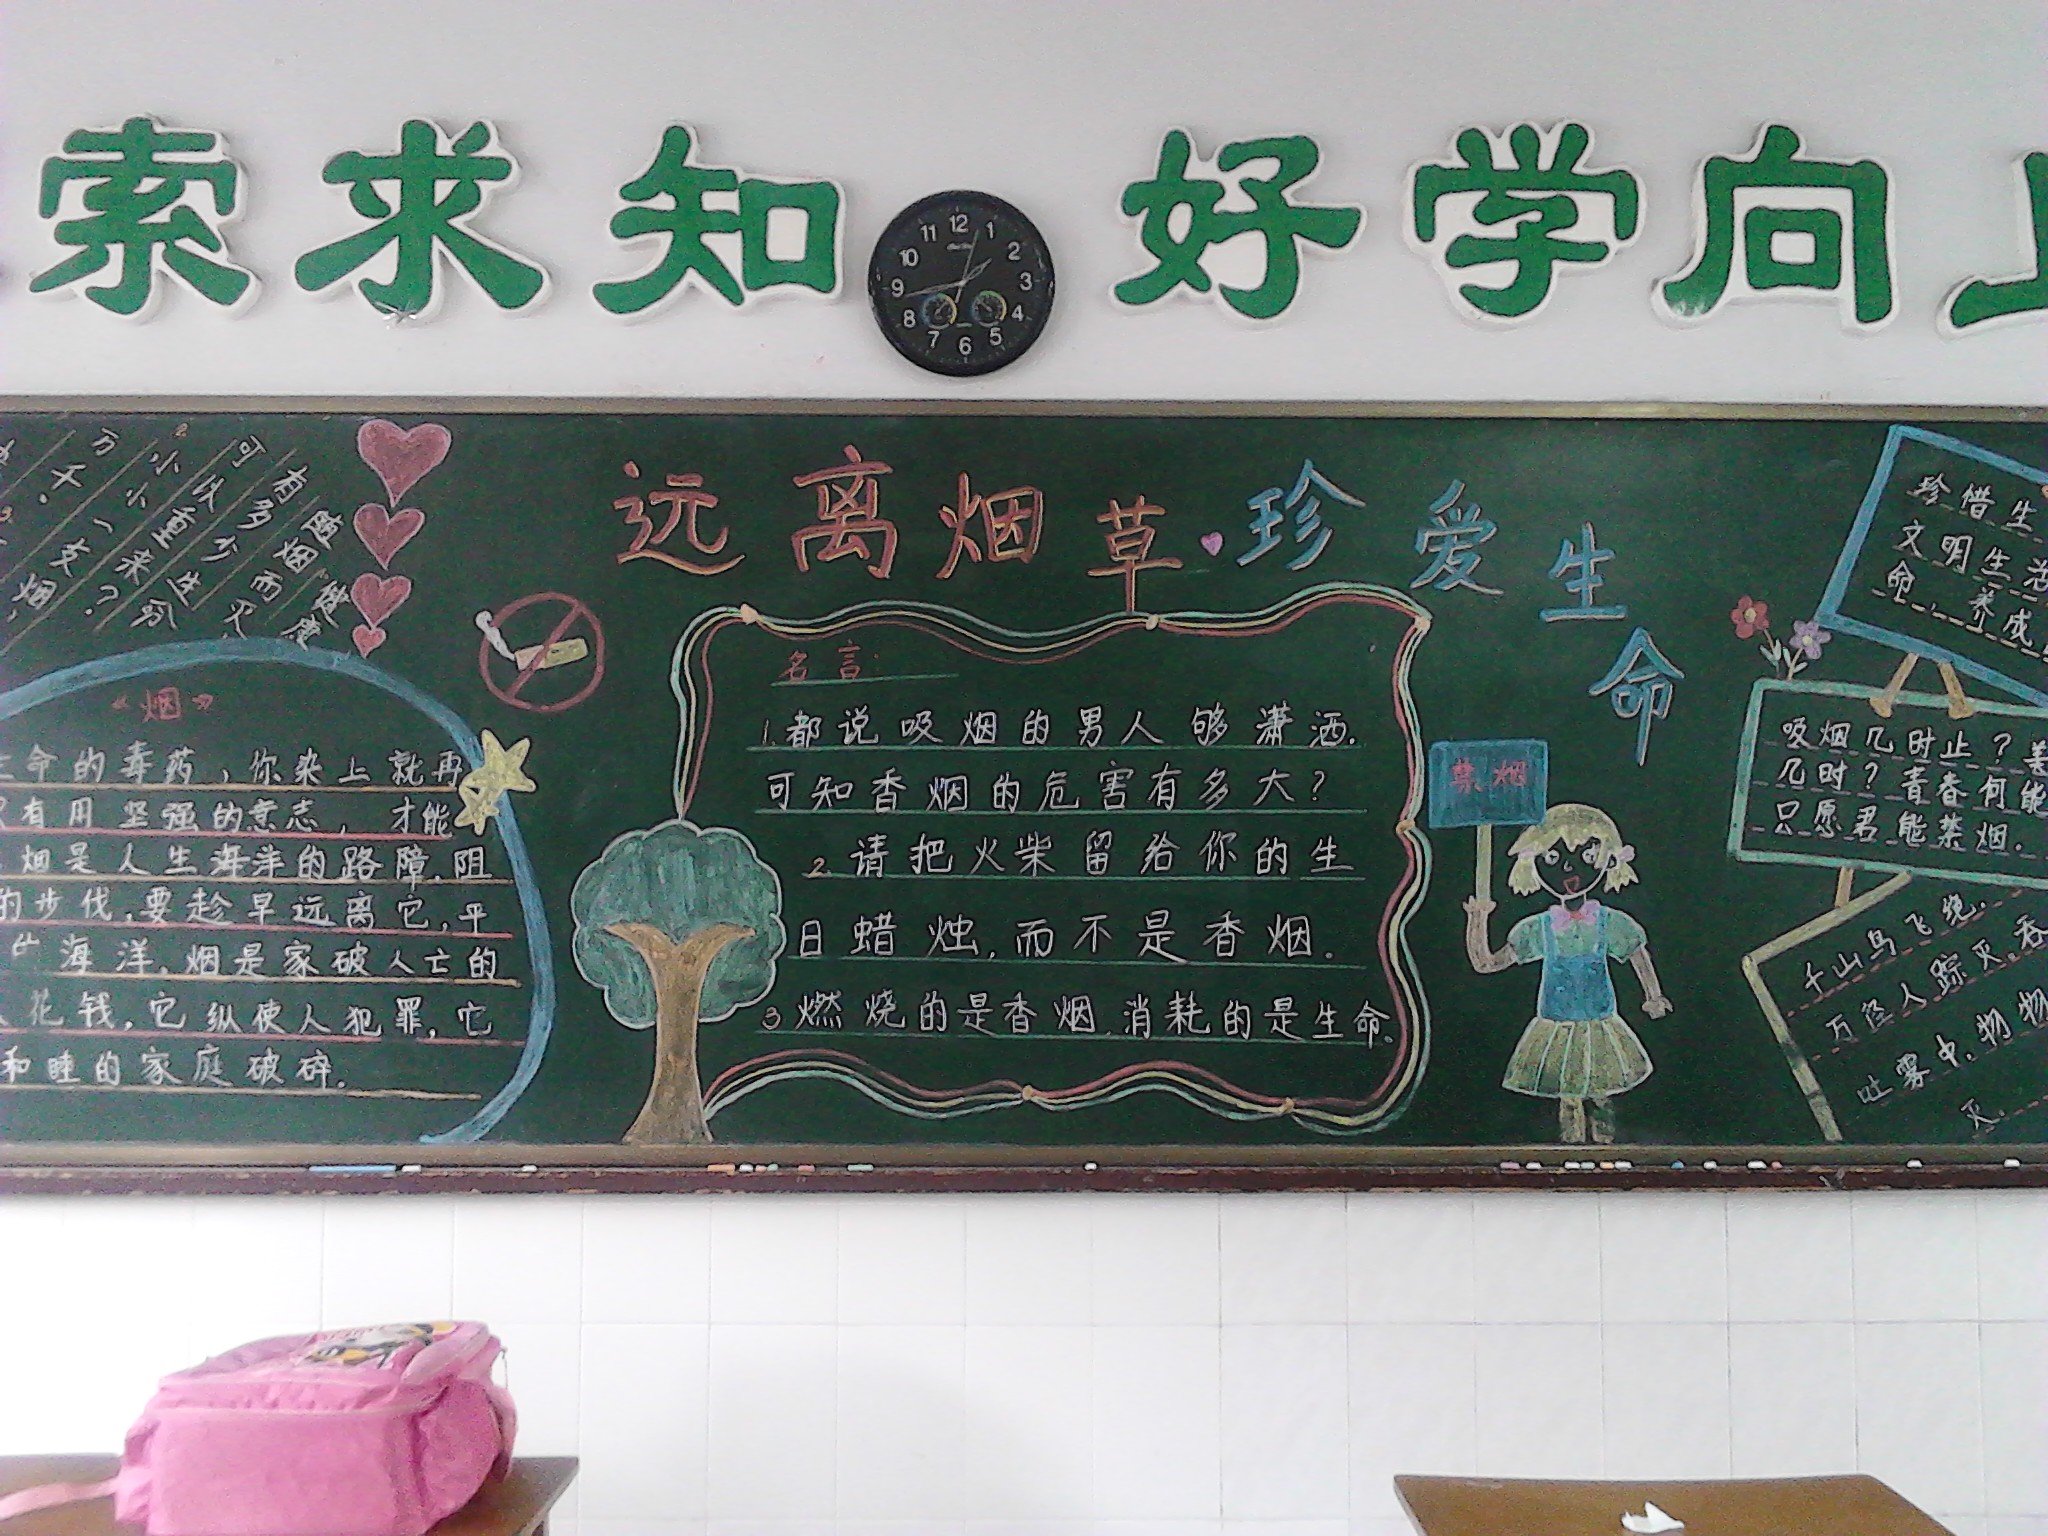 索求知 好学向上
12
1
2
3
4
5
6
7
8
9
10
11
远离烟草·珍爱生命
有多少生
可以重来?
小小一支烟
万千
《烟》
命的毒药,你染上就再
有用坚强的意志,才能
烟是人生海洋的路障,阻
的步伐,要趁早远离它,平
海洋,烟是家破人亡的
花钱,它纵使人犯罪,它
和睦的家庭破碎.
名言:
1.都说吸烟的男人够潇洒.
可知香烟的危害有多大?
2.请把火柴留给你的生
日蜡烛,而不是香烟.
3燃烧的是香烟,消耗的是生命.
禁烟
珍惜生
文明生活
命,养成
吸烟几时止?
几时?青春何能
只愿君能禁烟.
千山鸟飞绝.
万径人踪灭。吞
吐雾中,物物
灭.